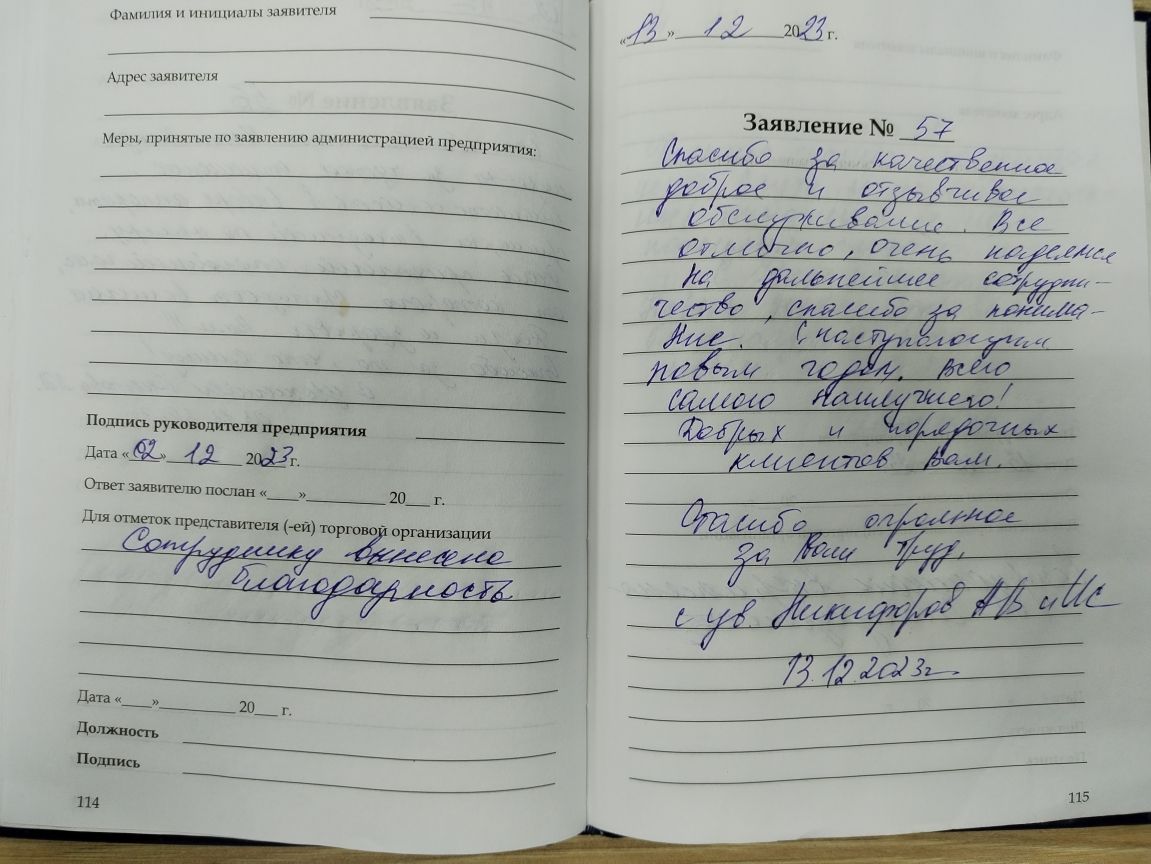 Фамилия и инициалы заявителя
Адрес заявителя
Меры, принятые по заявлению администрацией предприятия:
Подпись руководителя предприятия
Дата «02» 12 2023 г.
Ответ заявителю послан «____»__________ 20___ г.
Для отметок представителя (-ей) торговой организации
Сотруднику вынесена
благодарность
Дата «____»__________ 20___ г.
Должность
Подпись
114
«13» 12 2023 г.
Заявление № 57
Спасибо за качественное
доброе и отзывчивое
обслуживание. Все
отлично, очень надеемся
на дальнейшее сотрудни-
чество, спасибо за понима-
ние. С наступающим
новым годом. Всего
самого наилучшего!
Добрых и порядочных
клиентов Вам.
Спасибо огромное
за Ваш труд.
с ув. Никифоров АВ и ИС
13.12.2023г.
115